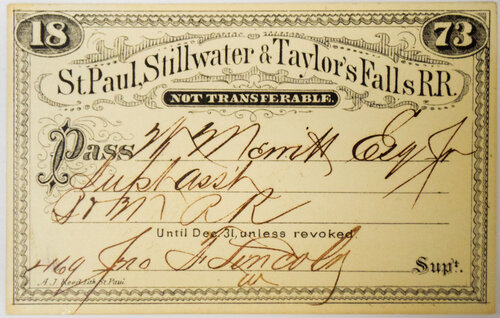 18 73
St. Paul, Stillwater & Taylor's Falls R.R.
NOT TRANSFERABLE.
Pass W Merritt Esq Jr
Supt
R
Until Dec. 31, unless revoked.
Jno F Lincoln Supt.
A. J. Reed Lith. St. Paul